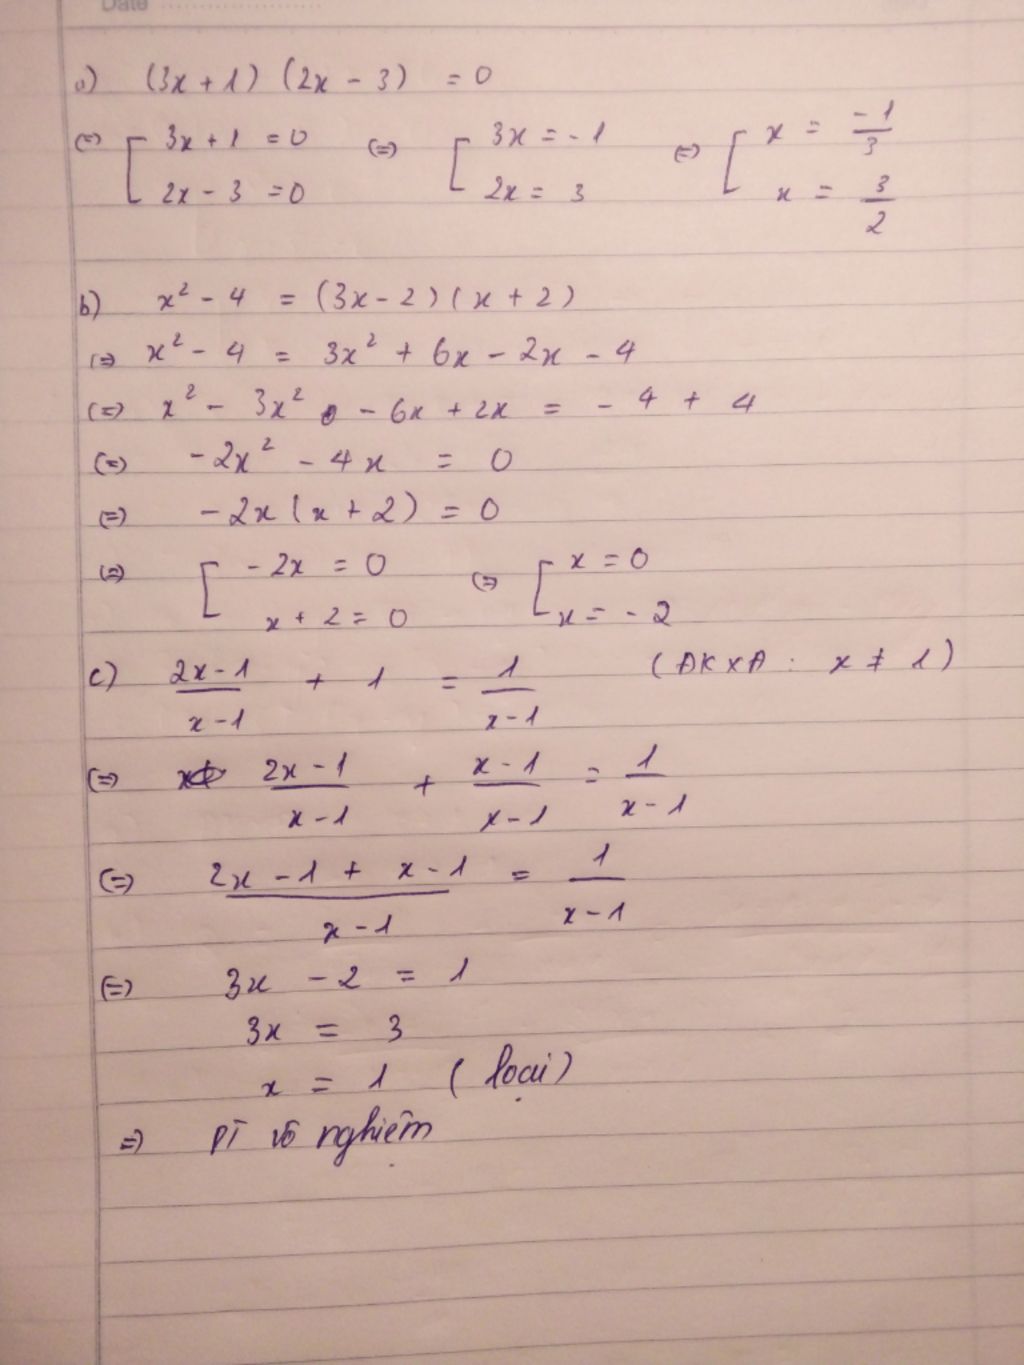 Date
a) (3x + 1) (2x - 3) = 0
(=) [ 3x + 1 = 0 (=) [ 3x = - 1 (=) [ x = -1/3
2x - 3 = 0 2x = 3 x = 3/2
b) x² - 4 = (3x - 2) (x + 2)
(=) x² - 4 = 3x² + 6x - 2x - 4
(=) x² - 3x² - 6x + 2x = - 4 + 4
(=) - 2x² - 4x = 0
(=) - 2x (x + 2) = 0
(=) [ - 2x = 0 (=) [ x = 0
x + 2 = 0 x = - 2
c) (2x - 1)/(x - 1) + 1 = 1/(x - 1) (ĐKXĐ : x ≠ 1)
(=) (2x - 1)/(x - 1) + (x - 1)/(x - 1) = 1/(x - 1)
(=) (2x - 1 + x - 1)/(x - 1) = 1/(x - 1)
(=) 3x - 2 = 1
3x = 3
x = 1 (loại)
=) PT vô nghiệm